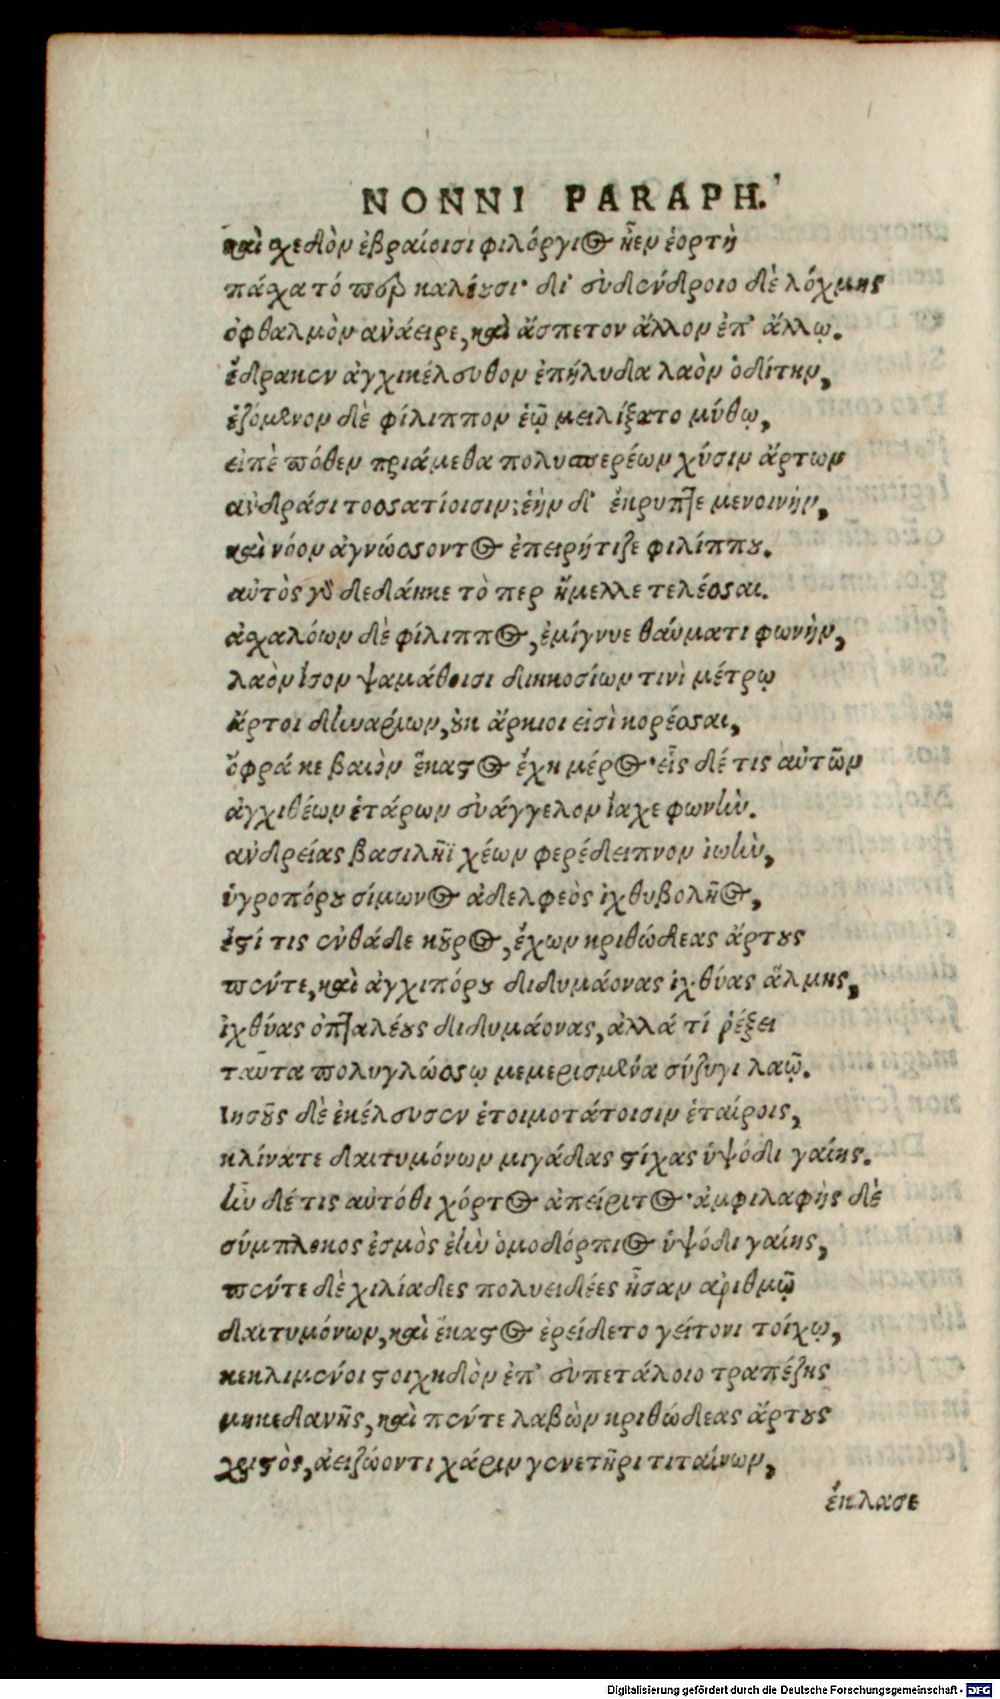 NONNI PARAPH.
καὶ σχεδὸν ἑβραίοισι φιλόργιος ἦεν ἑορτὴ
πάσχα τό περ καλέουσι· δι' εὐδένδροιο δὲ λόχμης
ὀφθαλμὸν ἀνάειρε, καὶ ἄσπετον ἄλλον ἐπ' ἄλλῳ.
ἔδρακεν ἀγχικέλευθον ἐπήλυδα λαὸν ὁδίτην,
ἑζόμενον δὲ φίλιππον ἑῷ μειλίξατο μύθῳ,
εἰπὲ πόθεν πριάμεθα πολυσπερέων χύσιν ἄρτων
ἀνδράσι τοσσατίοισιν; ἑὴν δ' ἔκρυπτε μενοινὴν,
καὶ νόον ἀγνώσσοντος ἐπειρήτιζε φιλίππου.
αὐτὸς γὰρ δεδάηκε τὸ περ ἤμελλε τελέσσαι.
ἀσχαλόων δὲ φίλιππος, ἐμίγνυε θαύματι φωνὴν,
λαὸν ἶσον ψαμάθοισι διηκοσίων τινὶ μέτρῳ
ἄρτοι δηναρίων, οὐκ ἄρκιοι εἰσὶ κορέσσαι,
ὄφρά κε βαιὸν ἕκαστος ἔχῃ μέρος· εἷς δέ τις αὐτῶν
ἀγχιθέων ἑτάρων συάγγελον ἴαχε φωνὴν.
ἀνδρείας βασιλῆϊ χέων φερέδειπνον ἰωὴν,
ὑγροπόρου σίμωνος ἀδελφεὸς ἰχθυβολῆος,
ἐστί τις ἐνθάδε κοῦρος, ἔχων κριθώδεας ἄρτους
πέντε, καὶ ἀγχιπόρου διδυμάονας ἰχθύας ἅλμης,
ἰχθύας ὀπταλέους διδυμάονας, ἀλλά τί ῥέξει
ταῦτα πολυγλώσσῳ μεμερισμένα σύζυγι λαῷ.
Ιησοῦς δὲ ἐκέλευσεν ἑτοιμοτάτοισιν ἑταίροις,
κλίνατε δαιτυμόνων μιγάδας στίχας ὑψόθι γαίης.
ἦν δέ τις αὐτόθι χόρτος ἀπείριτος· ἀμφιλαφὴς δὲ
σύμπλοκος ἐσμὸς ἐὼν ὁμοδόρπιος ὑψόθι γαίης,
πέντε δὲ χιλιάδες πολυειδέες ἦσαν ἀριθμῷ
δαιτυμόνων, καὶ ἕκαστος ἐρείδετο γείτονι τοίχῳ,
κεκλιμένοι στοιχηδὸν ἐπ' εὐπετάλοιο τραπέζης
μηκεδανῆς, καὶ πέντε λαβὼν κριθώδεας ἄρτους
χριστὸς, ἀειζώοντι χάριν γενετῆρι τιταίνων,
ἔκλασε
Digitalisierung gefördert durch die Deutsche Forschungsgemeinschaft - DFG